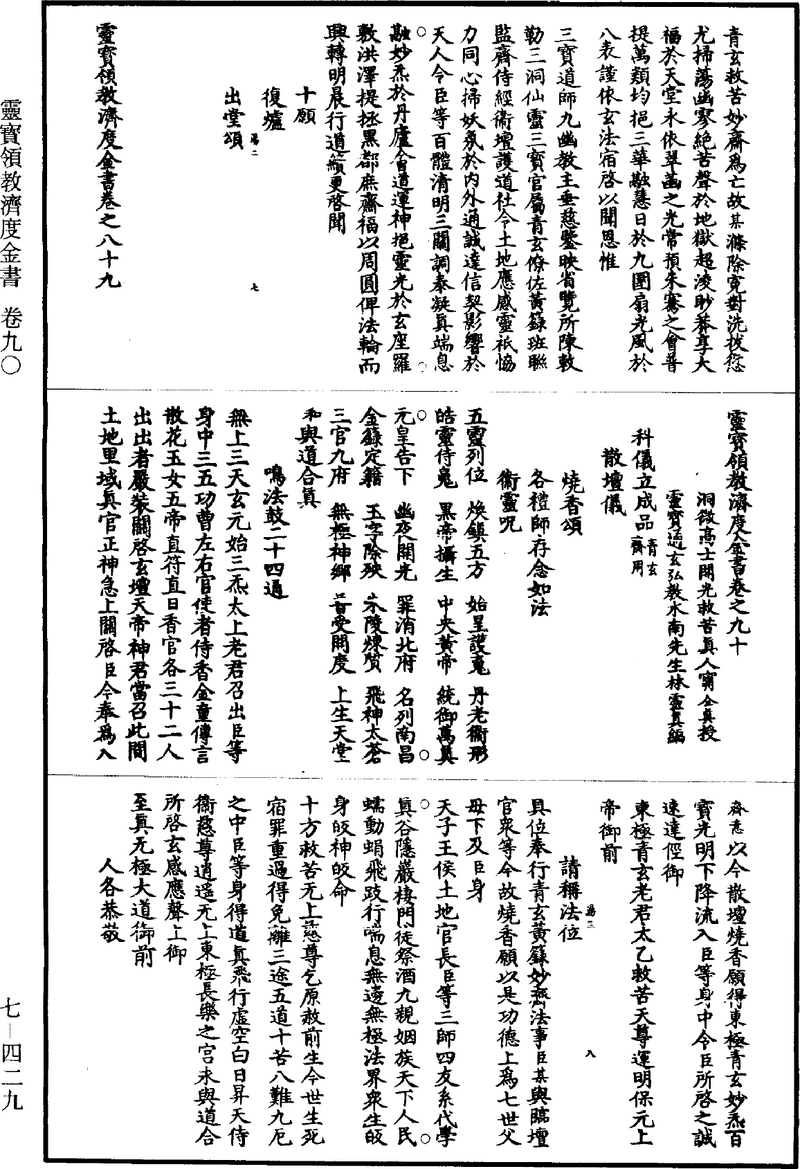 靈寶領教濟度金書 卷九〇
七—四二九
青玄救苦妙齋爲亡故某滌除寃對洗拔愆
尤掃蕩幽雰絕苦聲於地獄超淩眇莽享大
福於天堂永依翠蓋之光常預朱騫之會普
提萬類均挹三華融慧日於九圍扇光風於
八表謹依玄法宿啓以聞恩惟
三寶道師九幽教主垂慈鑒映省覽所陳敕
勒三洞仙靈三寶官屬青玄僚佐黃籙班聯
監齋侍經衞壇護道社令土地應感靈祇恊
力同心掃妖氛於内外通誠達信契影響於
天人令臣等百體清明三關調泰凝真端息
融妙炁於丹廬會道運神挹靈光於玄座羅
敷洪澤提拯黑都庶齋福以周圓俾法輪而
興轉明晨行道續更啓聞
十願
復爐
出堂頌
靈寶領教濟度金書卷之八十九
靈寶領教濟度金書卷之九十
洞微高士開光救苦眞人甯全真授
靈寶通玄弘教水南先生林靈真編
科儀立成品青玄齋用
散壇儀
燒香頌
各禮師存念如法
衞靈呪
五靈列位 煥鎮五方 始皇護魂 丹老衞形
皓靈侍魄 黑帝攝生 中央黃帝 統御萬真
元皇告下 幽夜開光 罪消北府 名列南昌
金籙定籍 玉字除殃 朱陵煉質 飛神太蒼
三官九府 無極神鄉 普受開度 上生天堂
和與道合真
鳴法鼓二十四通
無上三天玄元始三炁太上老君召出臣等
身中三五功曹左右官使者侍香金童傳言
散花玉女五帝直符直日香官各三十二人
出出者嚴裝關啓玄壇天帝神君當召此間
土地里域真官正神急上關啓臣今奉爲入
齋意以今散壇燒香願得東極青玄妙炁百
寶光明下降流入臣等身中令臣所啓之誠
速達徑御
東極青玄老君太乙救苦天尊運明保元上
帝御前
請稱法位
具位奉行青玄黃籙妙齋法事臣某與臨壇
官衆等今故燒香願以是功德上爲七世父
母下及臣身
天子王侯土地官長臣等三師四友系代學
真谷隱巖棲門徒祭酒九親姻族天下人民
蠕動蜎飛跂行喘息無邊無極法界衆生皈
身皈神皈命
十方救苦无上慈尊乞原赦前生今世生死
宿罪重過得免離三途五道十苦八難九厄
之中臣等身得道真飛行虛空白日昇天侍
衞慈尊逍遥元上東極長樂之宮永與道合
所啓玄感應聲上御
至真无極大道御前
人各恭敬